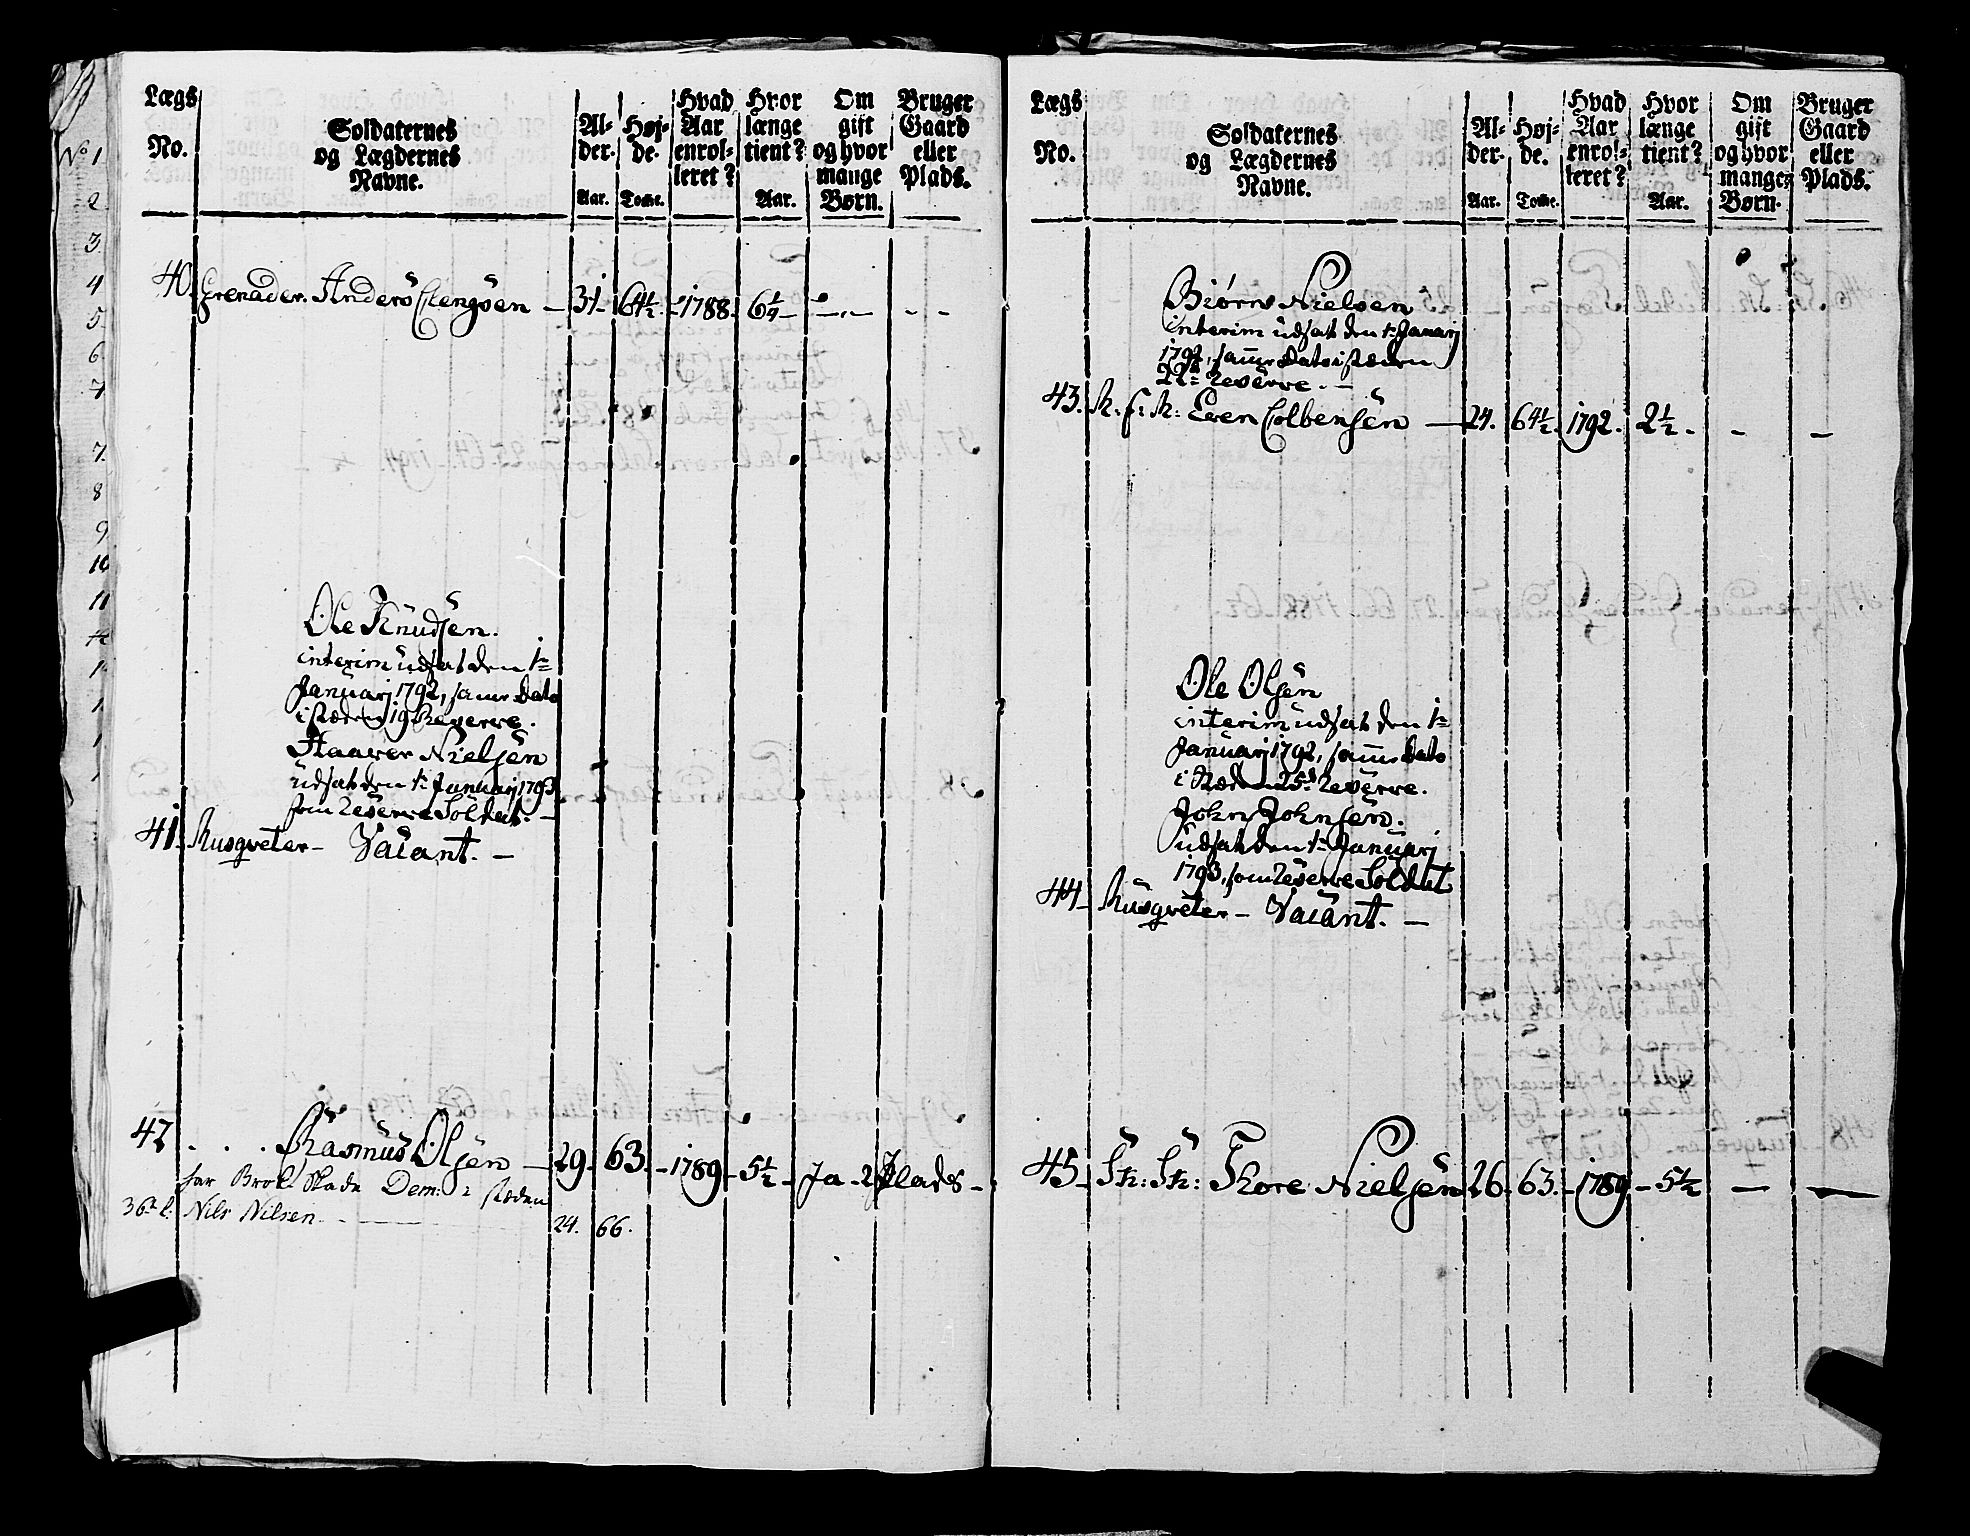 Lægs No.
Soldaternes og Lægdernes Navne.
Al-der. Aar.
Høj-de. Tomme.
Hvad Aar enrol-leret?
Hvor længe tient? Aar.
Om gift og hvor mange Børn.
Bruger Gaard eller Plads.
No 1
2
3
4
5
6
7
7
8
9
10
11
40. Grenader. Anders Clengsen — 31 64½ 1788. 6¼ — —
Ole Knudsen.
interim udsat den 1te
Januarj 1792, samme Dato
i stæden 19 Reserve.
Haaver Nielsen
udsat den 1te Januarj 1793
som Reserve Soldat. —
41. Musqveter — Vacant. —
42 . . . Rasmus Olsen — 29. 63. 1789 5½ Ja - 2 Plads -
har Brok Skade Dem: i stæden
36te R: Nils Nilsen. — 24. 66.
Lægs No.
Soldaternes og Lægdernes Navne.
Al-der. Aar.
Høj-de. Tomme.
Hvad Aar enrol-leret?
Hvor længe tient? Aar.
Om gift og hvor mange Børn.
Bruger Gaard eller Plads.
Biørn Nielsen
interim udsat den 1te Januarj
1792, samme Dato i stæden
22de Reserve. —
43. Even Colbensen — 24. 64½. 1792. 2½ - - -
Ole Olsen
interim udsat den 1te
Januarj 1792, samme Dato
i stæden 25de Reserve.
John Johnsen.
udsat den 1te Januarj
1793, som Reserve Soldat
44 Musqveter — Vacant. —
45 Sk: Sk: Thore Nielsen 26. 63. 1789 - 5½ — —